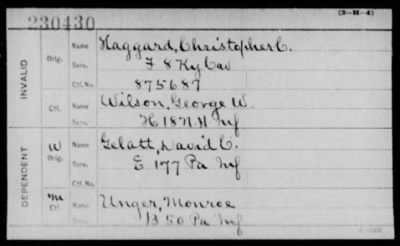 (3-H-4)
230430
INVALID
Orig. Name Haggard, Christopher C.
Serv. F 8 Ky Cav
Ctf. No. 875687
Ctf. Name Wilson, George W.
H 18 N.H Inf
DEPENDENT
W Orig. Name Gelatt, David C.
Serv. E 177 Pa Inf
Ctf. No.
M Ctf. Name Unger, Monroe
B 50 Pa Inf